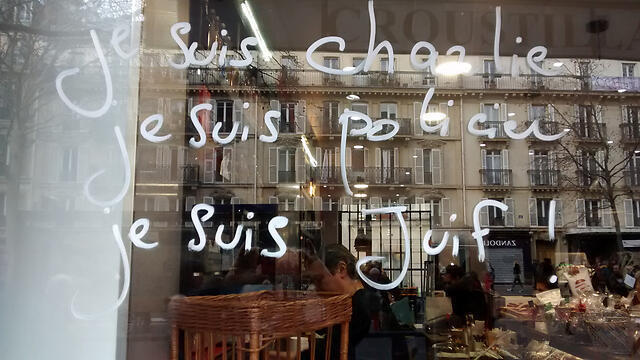 CROUSTILLA
je suis charlie
je suis policier
je suis Juif !
ZANDOLI